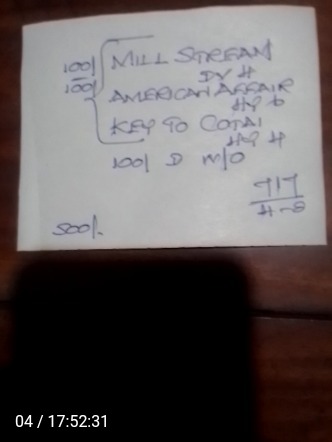 100/ MILL STREAM
DV H
100/ AMERICAN AFFAIR
HY 6
KEY TO COTAI
HY H
100/ D M/O
717
4-8
500/.
04 / 17:52:31